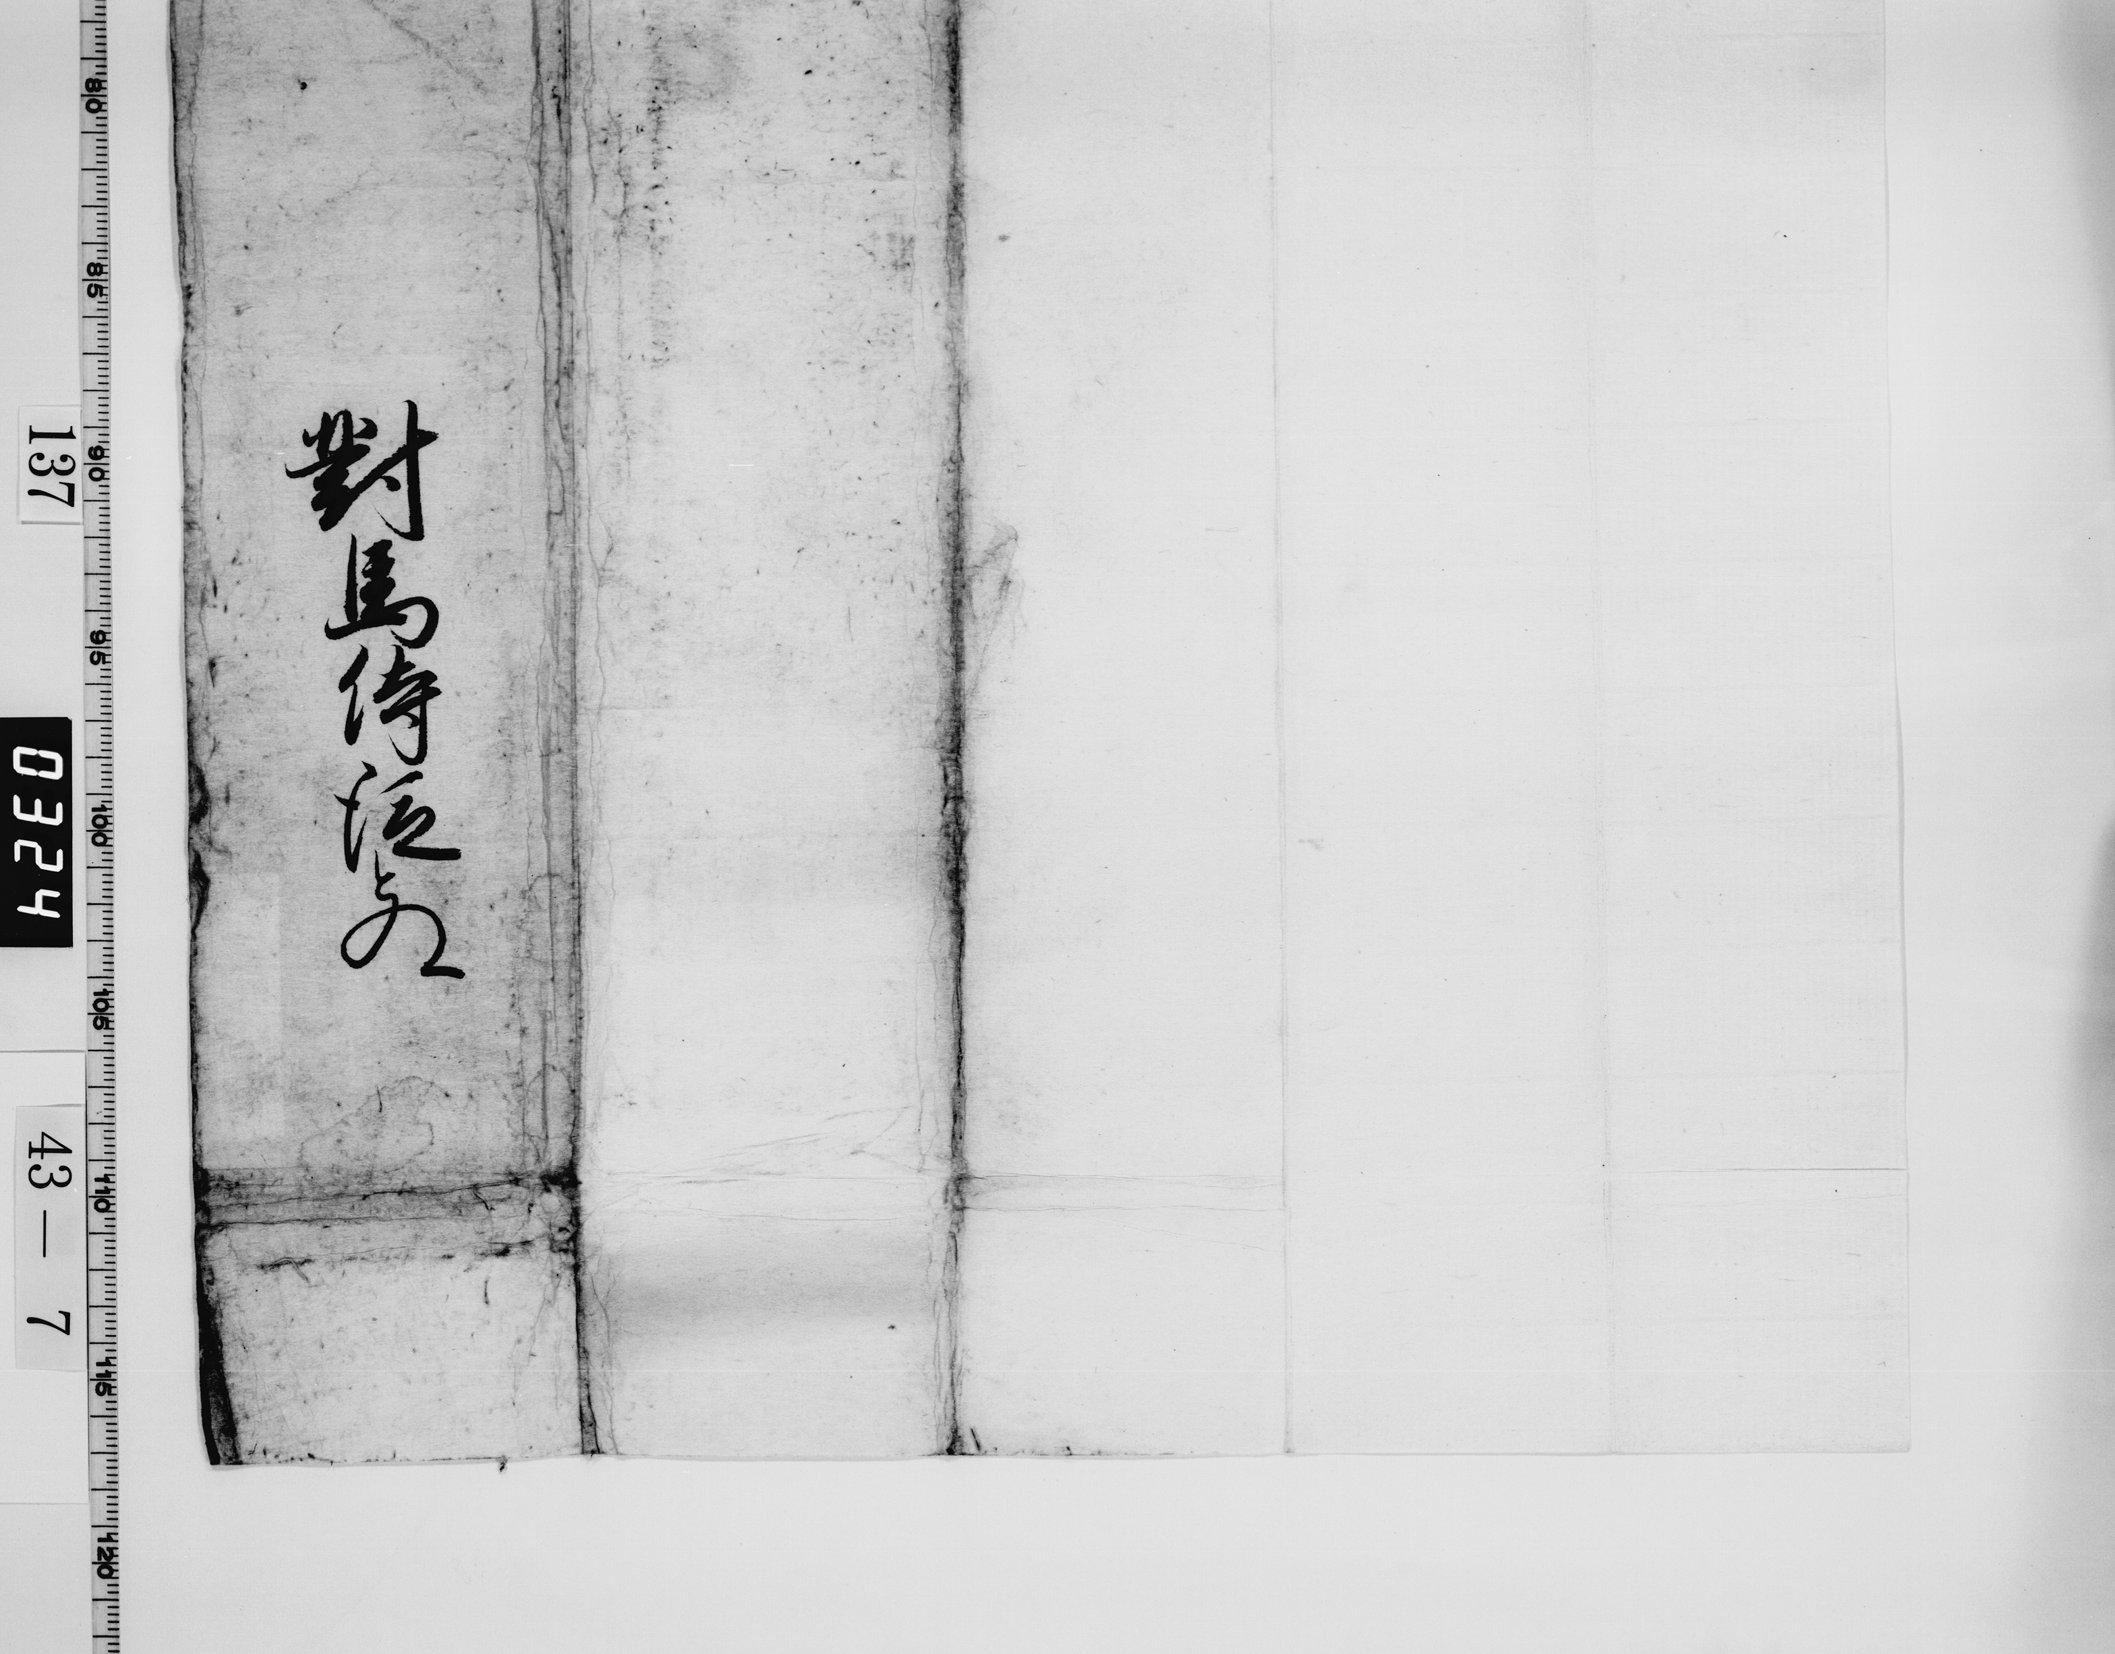 對馬侍從殿
137
0324
43-7
80
85
90
95
100
105
110
115
120